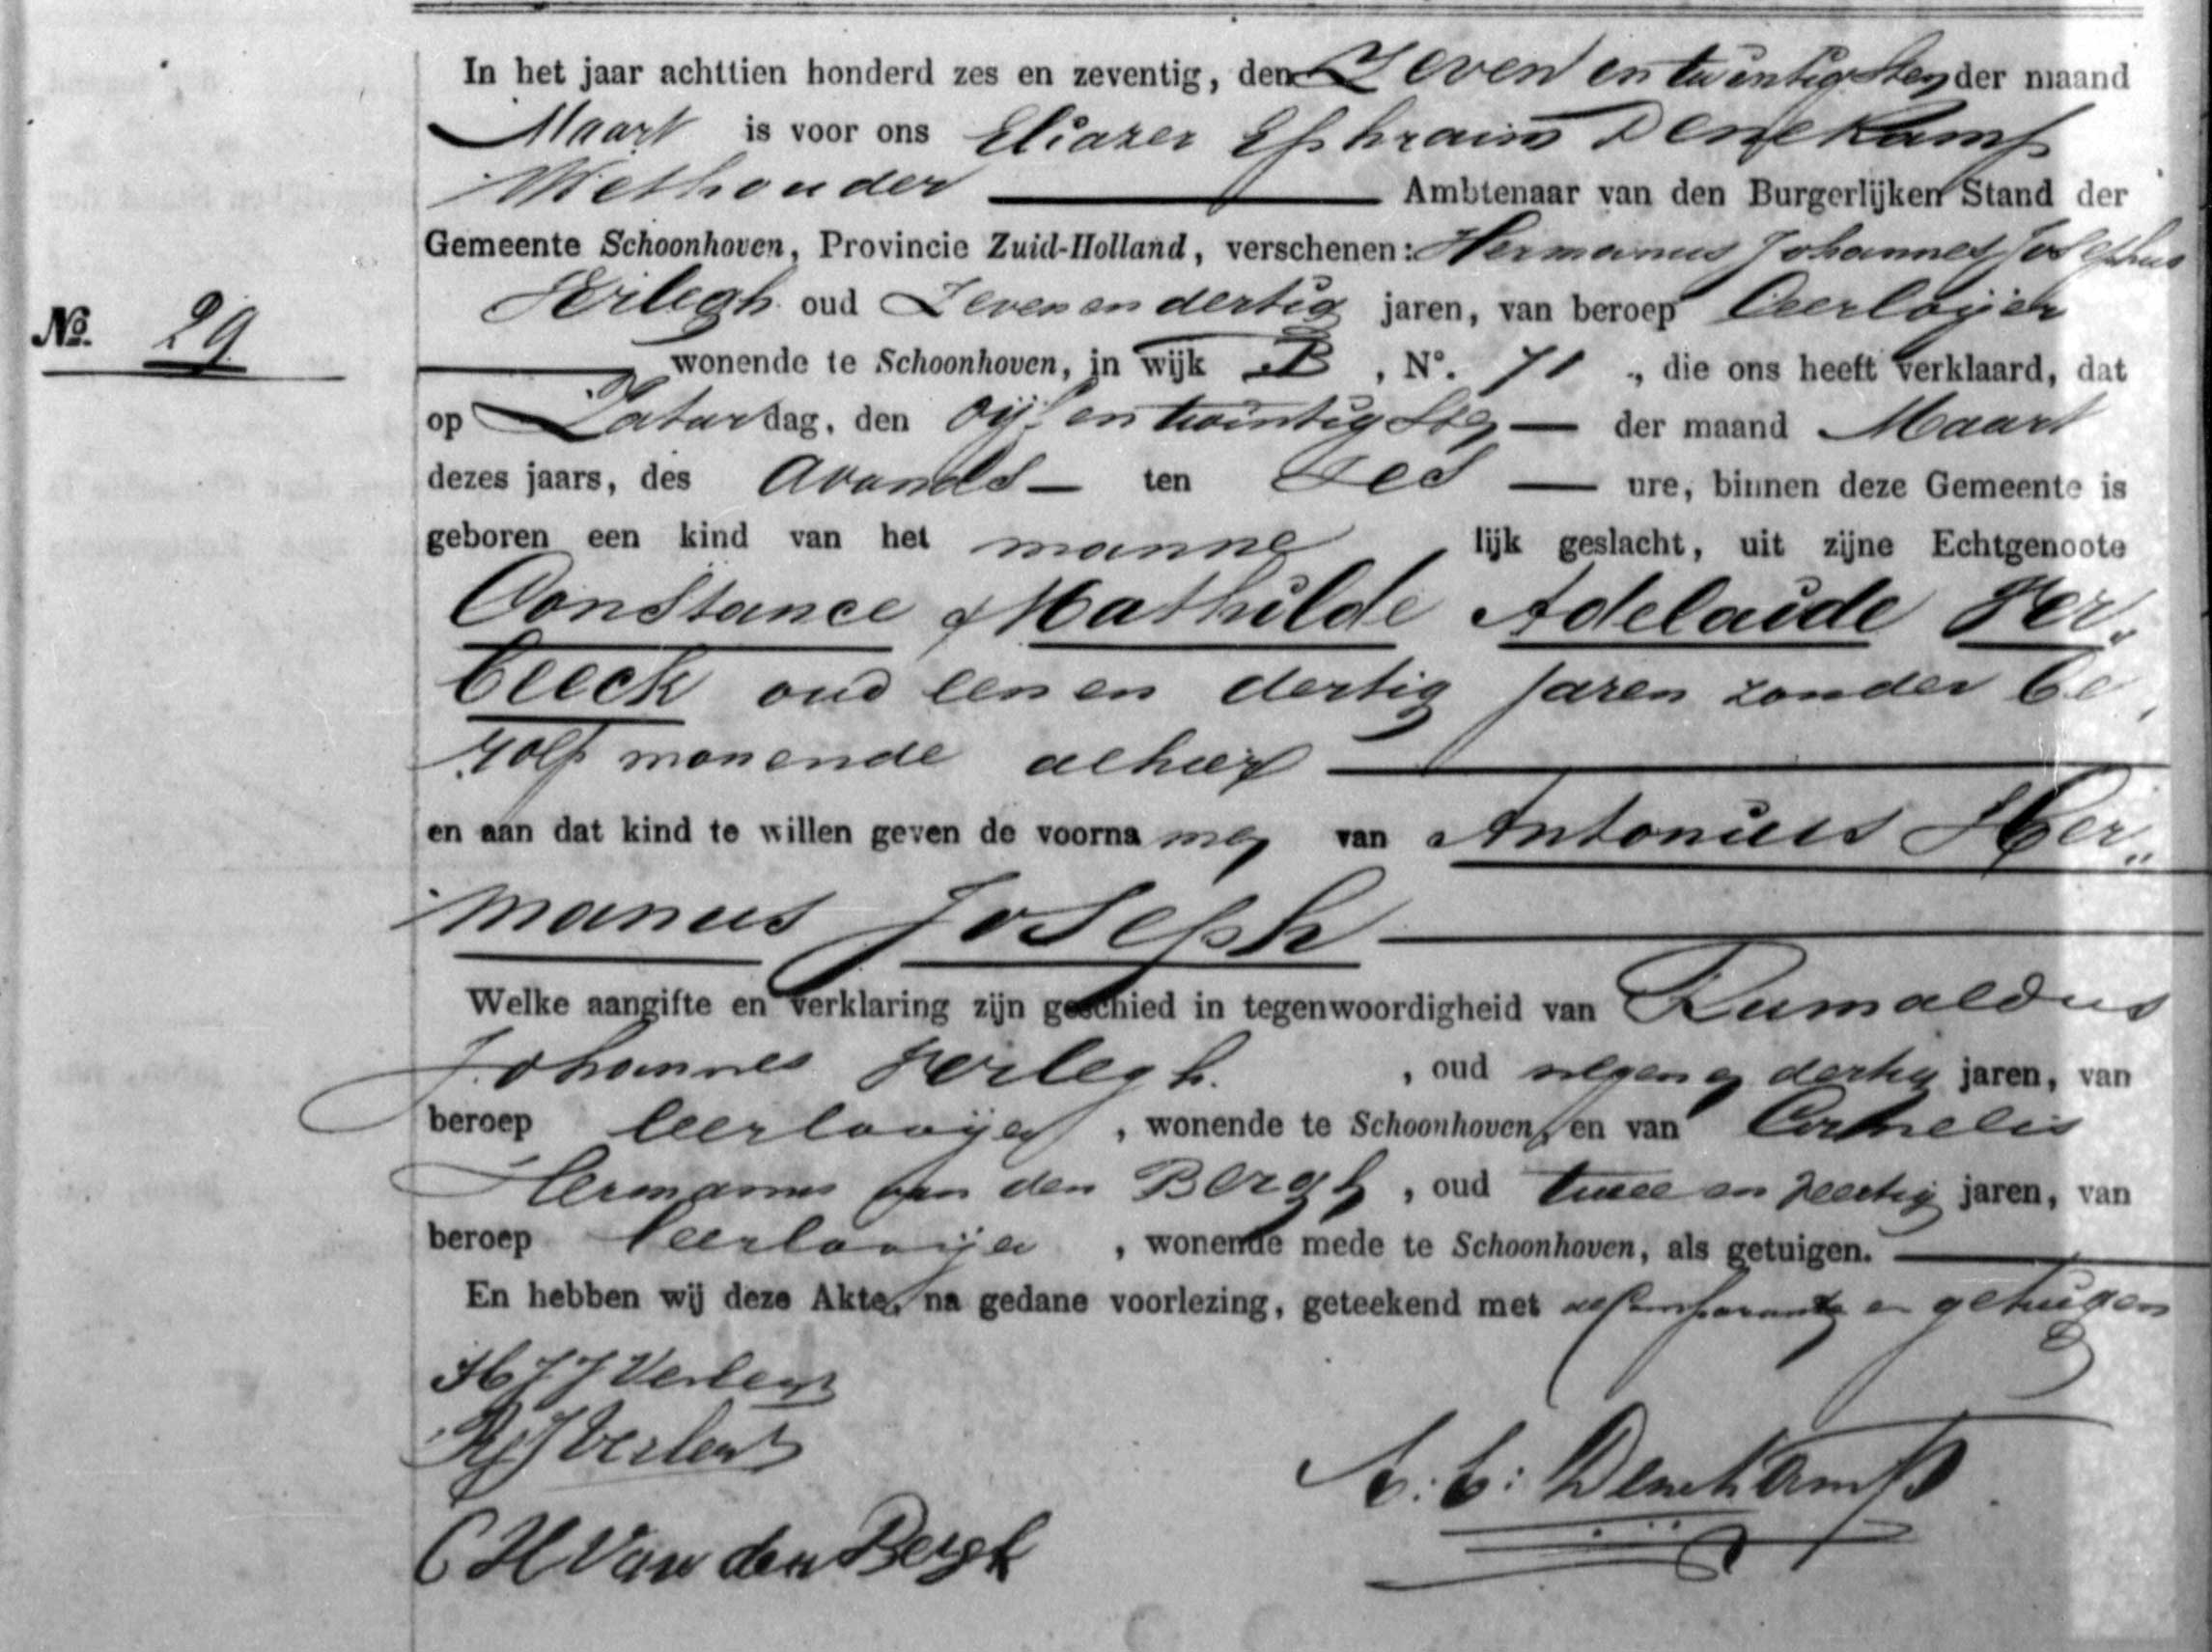 In het jaar achttien honderd zes en zeventig, den Zeven en twintigsten der maand
Maart is voor ons Eliazer Ephraim Denekamp
Wethouder Ambtenaar van den Burgerlijken Stand der
Gemeente Schoonhoven, Provincie Zuid-Holland, verschenen: Hermanus Johannes Josephus
Verlegh oud Zeven en dertig jaren, van beroep Leerlooijer
No. 29
wonende te Schoonhoven, in wijk B, No. 71, die ons heeft verklaard, dat
op Zaturdag, den vijf en twintigsten der maand Maart
dezes jaars, des avonds ten zes ure, binnen deze Gemeente is
geboren een kind van het mannelijk geslacht, uit zijne Echtgenoote
Constance Mathilde Adelaide Ver„
beeck oud een en dertig jaren zonder be„
roep wonende alhier
en aan dat kind te willen geven de voornamen van Antonius Her„
manus Joseph
Welke aangifte en verklaring zijn geschied in tegenwoordigheid van Rumaldus
Johannes Verlegh, oud negen en dertig jaren, van
beroep leerlooijer, wonende te Schoonhoven, en van Cornelis
Hermanus van den Bergh, oud twee en veertig jaren, van
beroep leerlooijer, wonende mede te Schoonhoven, als getuigen.
En hebben wij deze Akte, na gedane voorlezing, geteekend met de Comparant en getuigen
H J J Verlegh
R J Verlegh
E: E: Denekamp
C H Van den Bergh